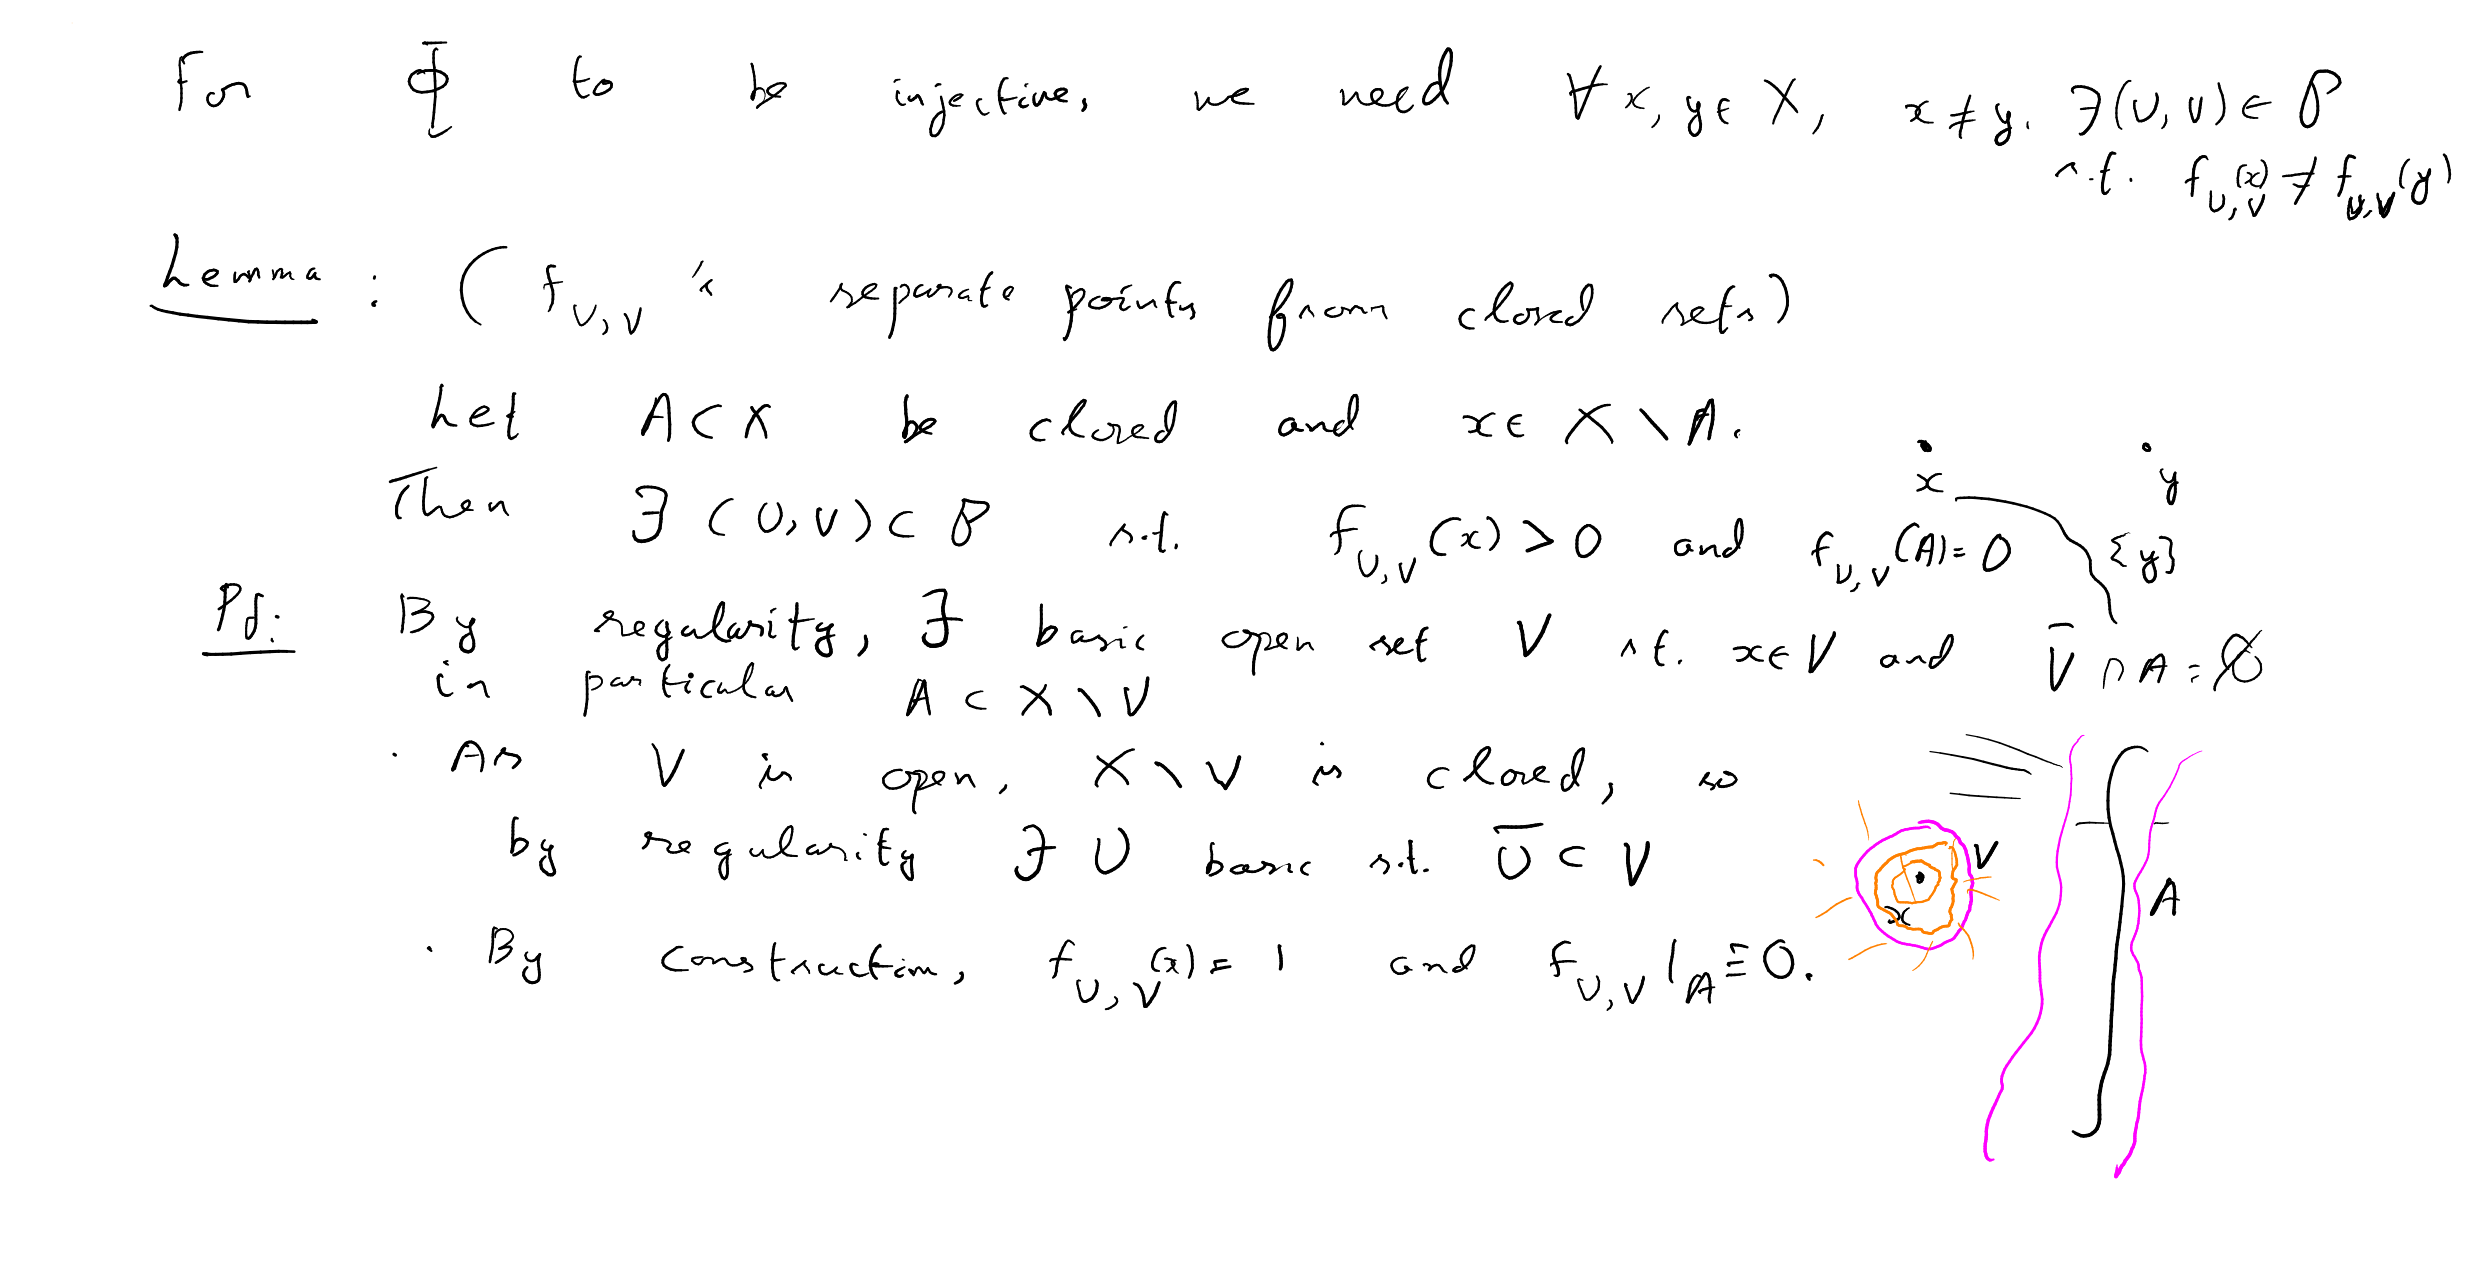 For Φ to be injective, we need ∀ x, y ∈ X, x ≠ y. ∃ (U, V) ∈ P
s.t. f_{U,V}(x) ≠ f_{U,V}(y)
Lemma : ( f_{U,V}'s separate points from closed sets)
Let A ⊂ X be closed and x ∈ X \ A.
x y
Then ∃ (U, V) ⊂ P s.t. f_{U,V}(x) > 0 and f_{U,V}(A) = 0 {y}
Pf: By regularity, ∃ basic open set V s.t. x ∈ V and V̄ ∩ A = ∅
in particular A ⊂ X \ V
· As V is open, X \ V is closed, so
by regularity ∃ U basic s.t. Ū ⊂ V
V
A
x
· By construction, f_{U,V}(x) = 1 and f_{U,V}|_A ≡ 0.